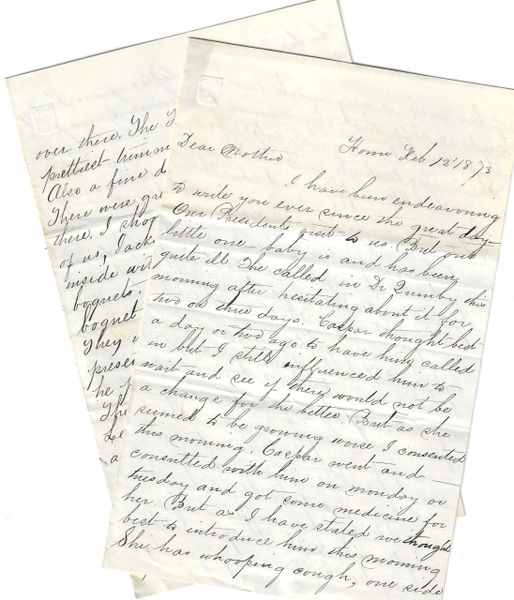 Home Feb 12" 1873
Dear Mother
I have been endeavoring
to write you ever since the great day
Our Presidents visit to us. But our
little one - baby is and has been
quite ill. We called in Dr Quimby this
morning after hesitating about it for
two or three days. Caspar thought best
a day or two ago to have him called
in but I still influenced him to
wait and see if there would not be
a change for the better. But as she
seemed to be growing worse I consented
this morning. Caspar went and
consulted with him on monday or
tuesday and got some medicine for
her. But as I have stated we thought
best to introduce him this morning
She has whooping cough, one side
over there. The
prettiest
Also a fine d
There were gre
there. I shop
of us, Jack
inside wi
boquets,
boquet
They
presen
he
The
Le
a